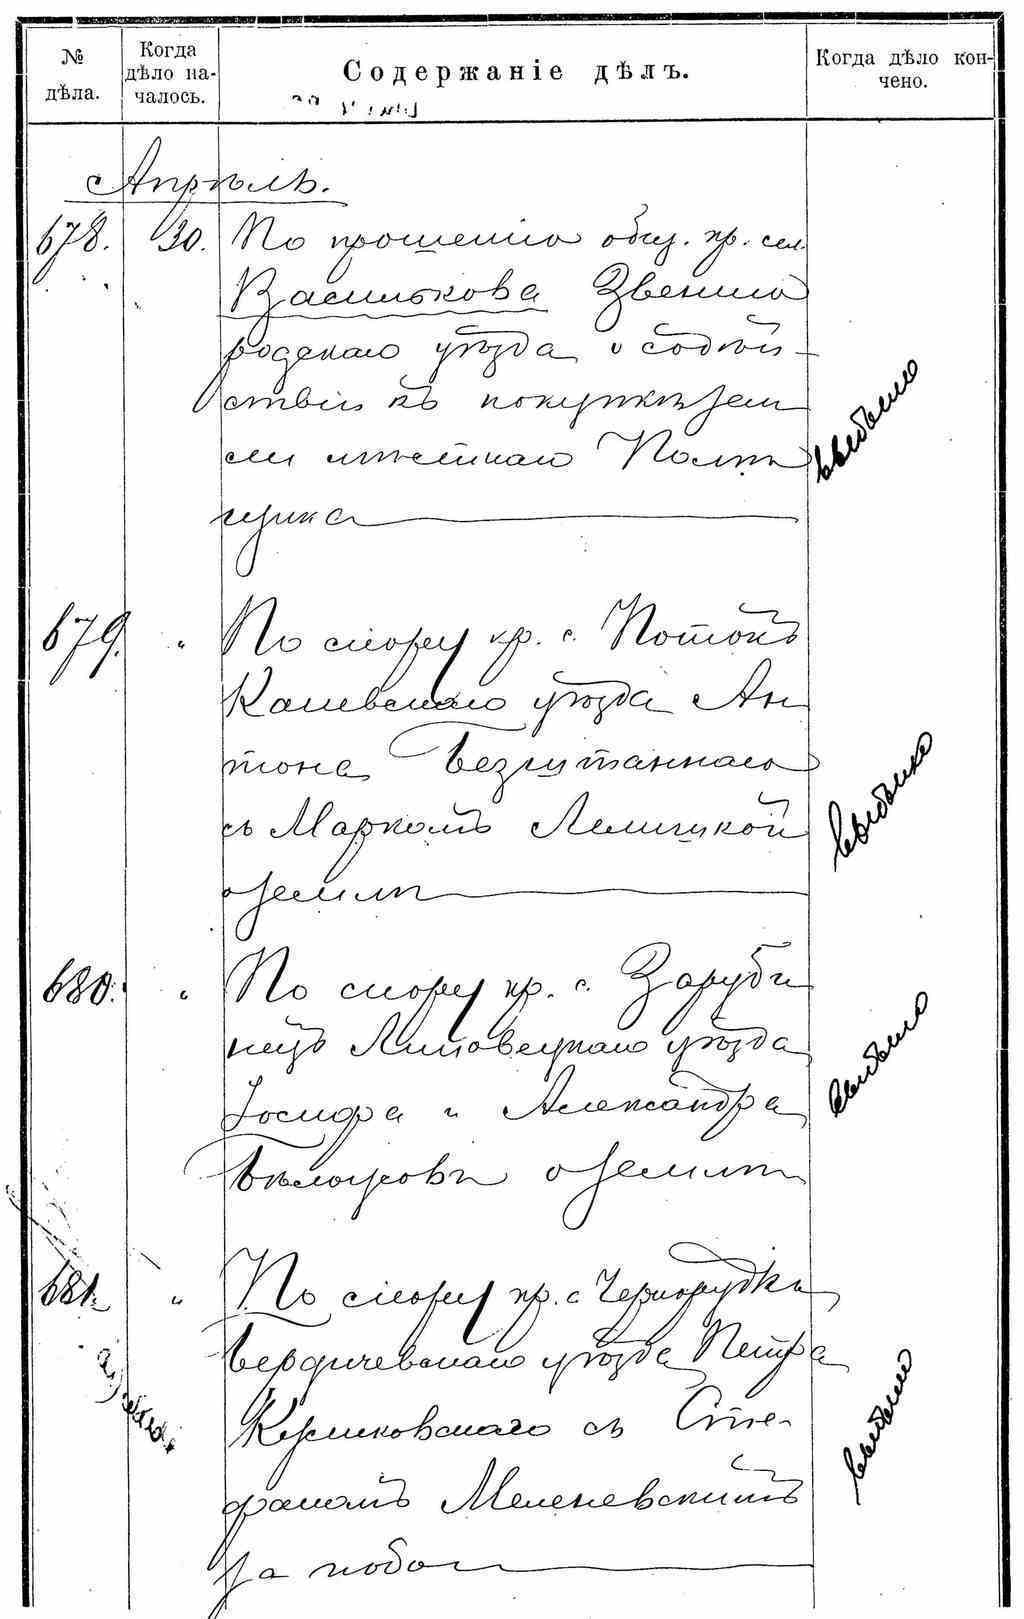 № дѣла.
Когда дѣло началось.
Содержаніе дѣлъ.
Когда дѣло кончено.
Апрѣль.
678. 30. По прошенію общ. кр. сел.
Василькова Звенино
родскаго уѣзда о содѣй-
ствіи къ покупкѣ зем
ли мѣстнаго Помѣ
щика
выбыло
679. " По спору кр. с. Потокъ
Каневскаго уѣзда Ан
тона Безштаннаго
съ Маркомъ Лелицкой
о землѣ
выбыло
680. " По спору кр. с. Заруби
нецъ Липовецкаго уѣзда
Іосифа и Александра
о землѣ
выбыло
681. " По спору кр. с. Чернорудки
Бердичевскаго уѣзда Петра
съ Сте-
фаномъ Меленевскимъ
за побои
выбыло